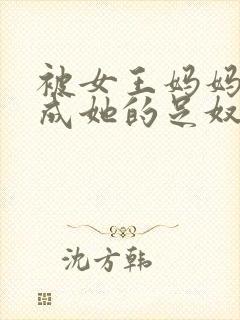 被女王妈妈
成她的足奴
沈方韩